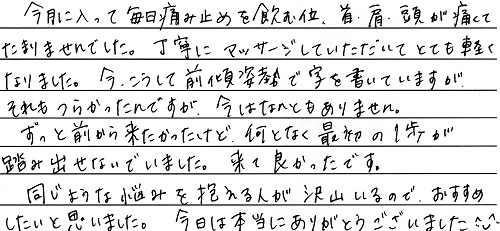 今月に入って毎日痛み止めを飲む位、首・肩・頭が痛くて
たまりませんでした。丁寧にマッサージしていただいてとても軽く
なりました。今、こうして前傾姿勢で字を書いていますが、
それもつらかったんですが、今はなんともありません。
ずっと前から来たかったけど、何となく最初の1歩が
踏み出せないでいました。来て良かったです。
同じような悩みを抱える人が沢山いるので、おすすめ
したいと思いました。今日は本当にありがとうございました